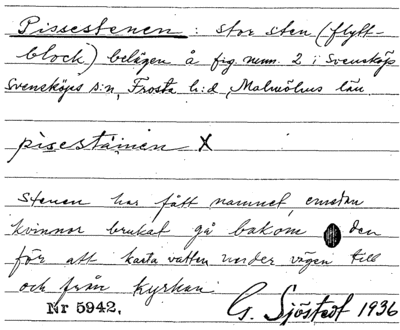 Pissestenen: stor sten (flytt-
block) belägen å fig. num. 2 i Svensköp
Svensköps s:n, Frosta h:d, Malmöhus län
pisestäinen X
Stenen har fått namnet, emedan
kvinnor brukat gå bakom den
för att kasta vatten under vägen till
och från kyrkan.
Nr 5942. G. Sjöstedt 1936